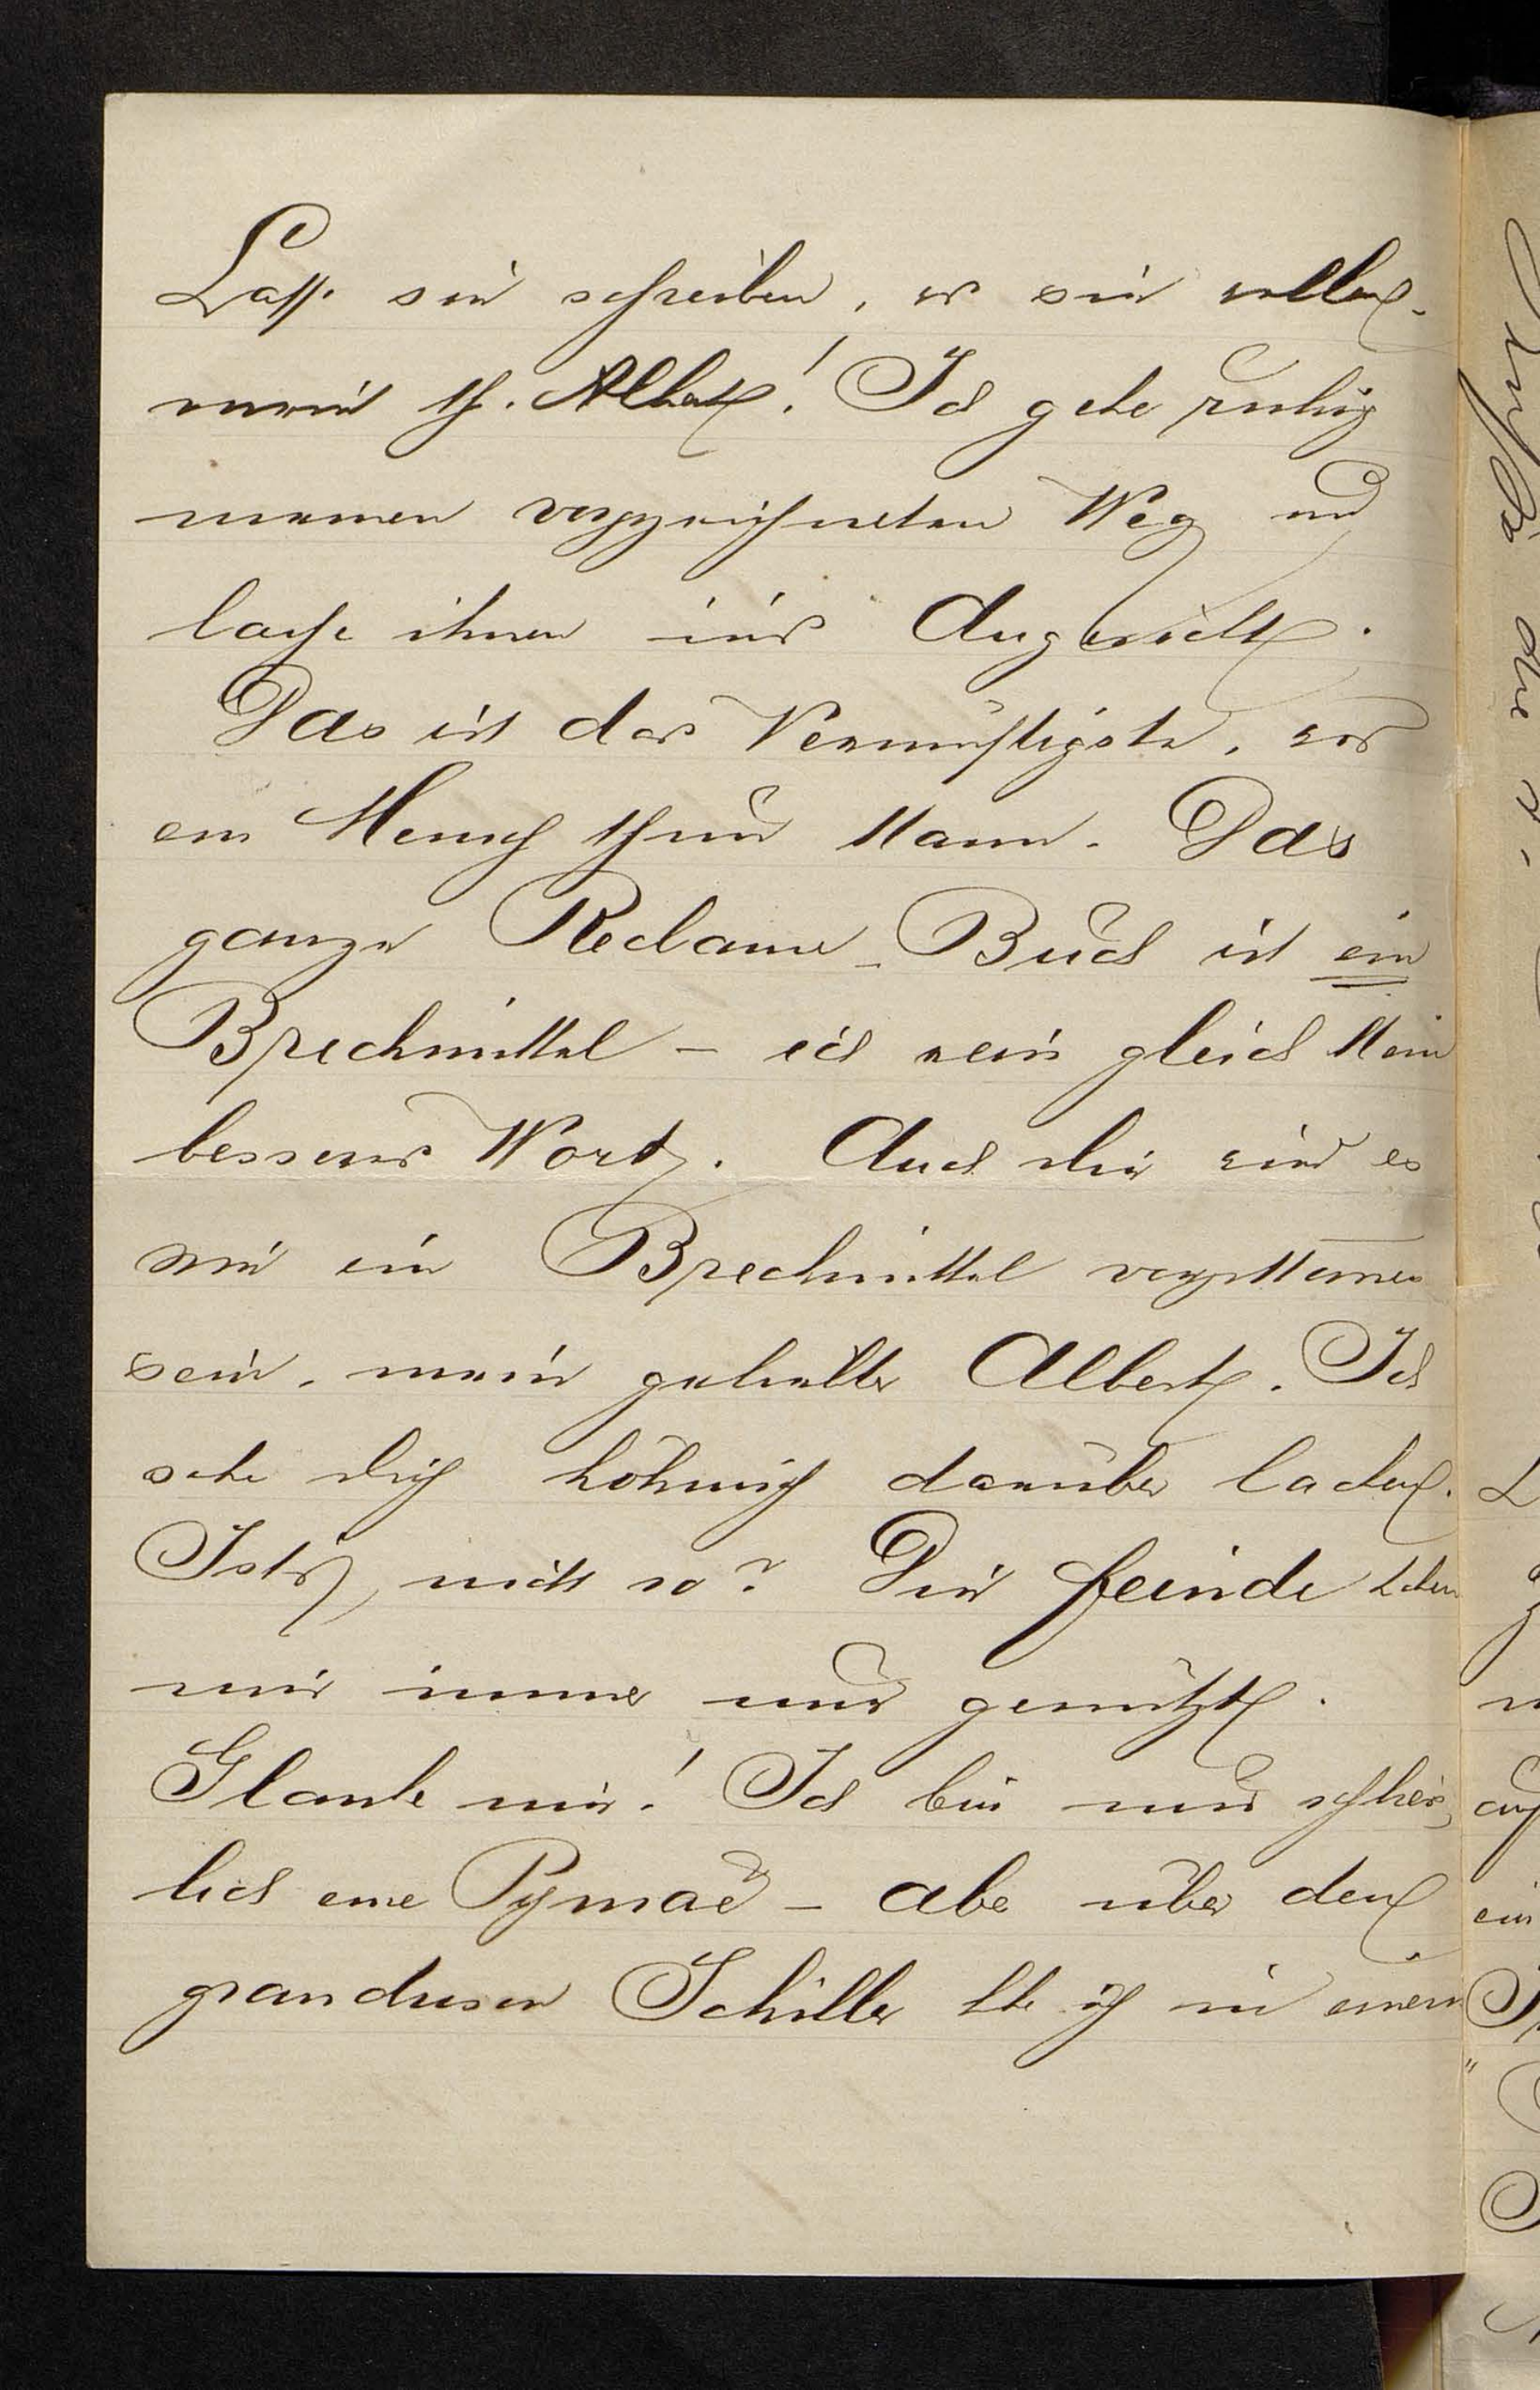 Lasse sie schreiben, was sie wollen,
mein th. Albert! Ich gehe ruhig
meinen vorgezeichneten Weg und
lache ihnen in's Angesicht.
Das ist das Vernünftigste, was
ein Mensch thun kann. Das
ganze Reclame-Buch ist ein
Brechmittel – ich weiss gleich kein
besseres Wort. Auch dir wird es
wie ein Brechmittel vorgekommen
sein, mein geliebter Albert. Ich
sehe dich höhnisch darüber lachen.
Ist's nicht so? Die Feinde haben
mir immer nur genützt.
Glaube mir! Ich bin nur schließ-
lich eine Pymäe – aber über den
grandiosen Schiller habe ich in einem